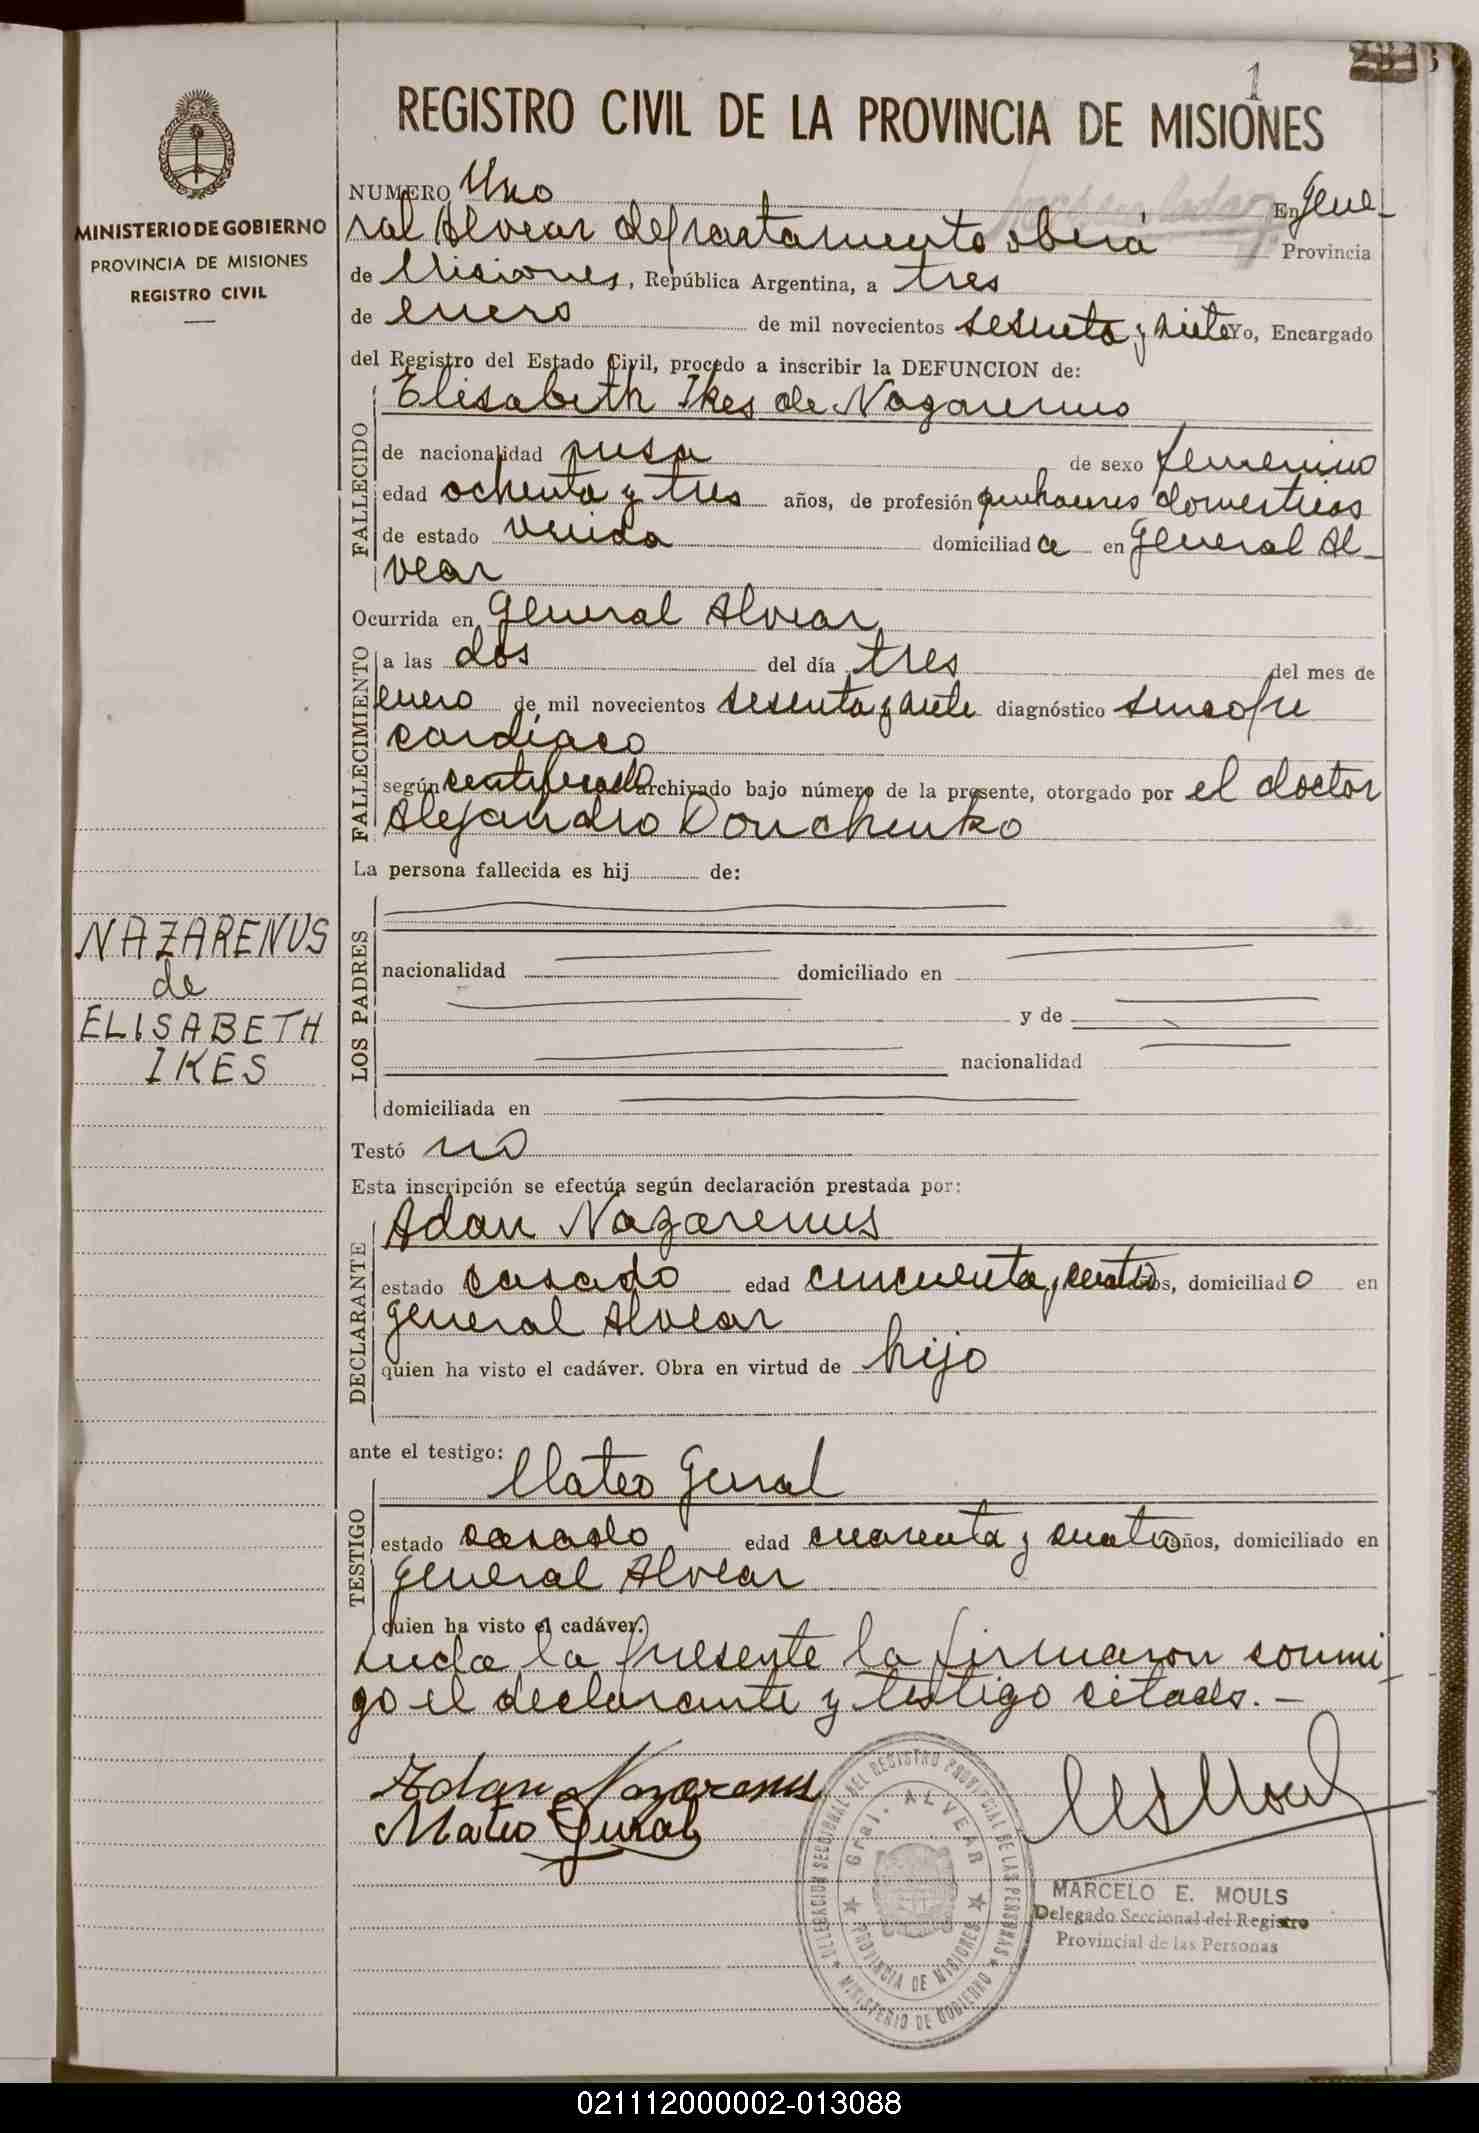 1
REGISTRO CIVIL DE LA PROVINCIA DE MISIONES
MINISTERIO DE GOBIERNO
PROVINCIA DE MISIONES
REGISTRO CIVIL
NAZARENUS
de
ELISABETH
IKES
NUMERO Uno En Gene-
ral Alvear departamento oberá Provincia
de Misiones, República Argentina, a tres
de enero de mil novecientos sesenta y siete Yo, Encargado
del Registro del Estado Civil, procedo a inscribir la DEFUNCION de:
FALLECIDO
Elisabeth Ikes de Nazarenus
de nacionalidad rusa de sexo femenino
edad ochenta y tres años, de profesión quehaceres domesticos
de estado viuda domiciliada en General Al-
vear
Ocurrida en General Alvear
FALLECIMIENTO
a las dos del día tres del mes de
enero de mil novecientos sesenta y siete diagnóstico sincope
cardiaco
según certificado archivado bajo número de la presente, otorgado por el doctor
Alejandro Donchenko
La persona fallecida es hij de:
LOS PADRES
nacionalidad domiciliado en
y de
nacionalidad
domiciliada en
Testó no
Esta inscripción se efectúa según declaración prestada por:
DECLARANTE
Adan Nazarenus
estado casado edad cincuenta y cuatro años, domiciliado en
General Alvear
quien ha visto el cadáver. Obra en virtud de hijo
ante el testigo:
TESTIGO
Mateo Gural
estado casado edad cuarenta y cuatro años, domiciliado en
General Alvear
quien ha visto el cadáver.
Leida la presente la firmaron conmi
go el declarante y testigo citados. -
Adan Nazarenus
Mateo Gural
DELEGACION SECCIONAL DEL REGISTRO PROVINCIAL DE LAS PERSONAS
Gral. ALVEAR
PROVINCIA DE MISIONES
MINISTERIO DE GOBIERNO
MARCELO E. MOULS
Delegado Seccional del Registro
Provincial de las Personas
021112000002-013088